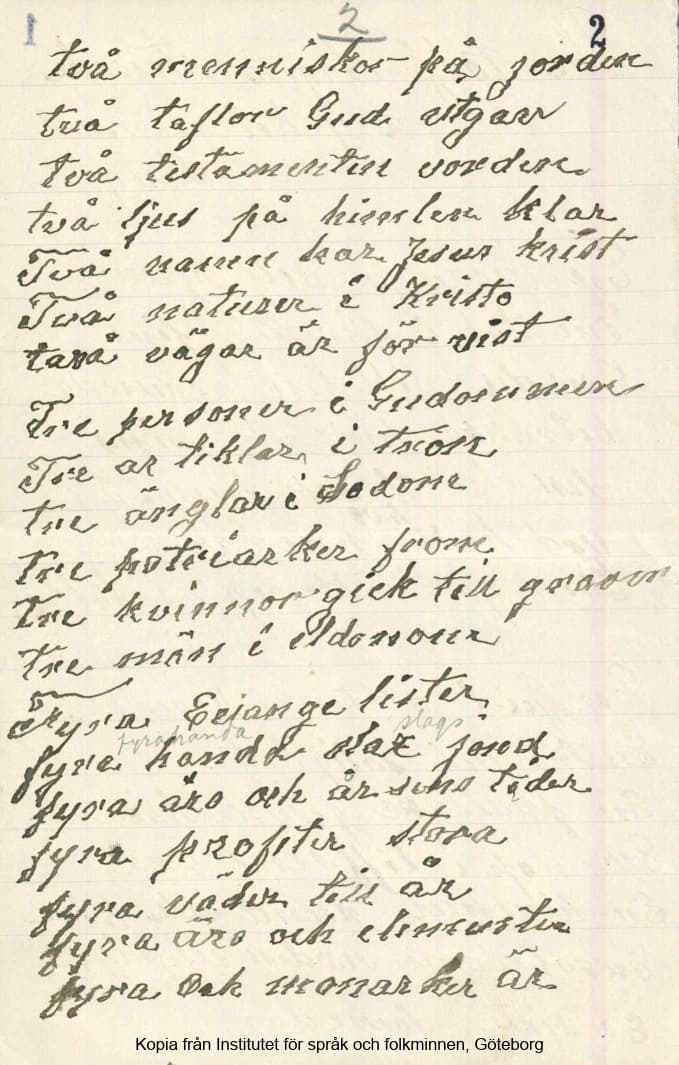 1 2 2
två menniskor på jorden
två taflor Gud utgaw
två testamenten vorden
två ljus på himlen klar
Två namn har Jesus krist
Två naturer i Kristo
två vägar är för vist
Tre personer i Gudommen
Tre artiklar i tron
tre änglar i Sodom
tre patriarker from
Tre kvinnor gick till graven
tre män i
Fyra Evangelister
fyrahanda slags
fyra handa slaz jord
fyra äro och årsens tider
fyra profeter stora
fyra väder till är
fyra äro och elementen
fyra och monarker är
Kopia från Institutet för språk och folkminnen, Göteborg